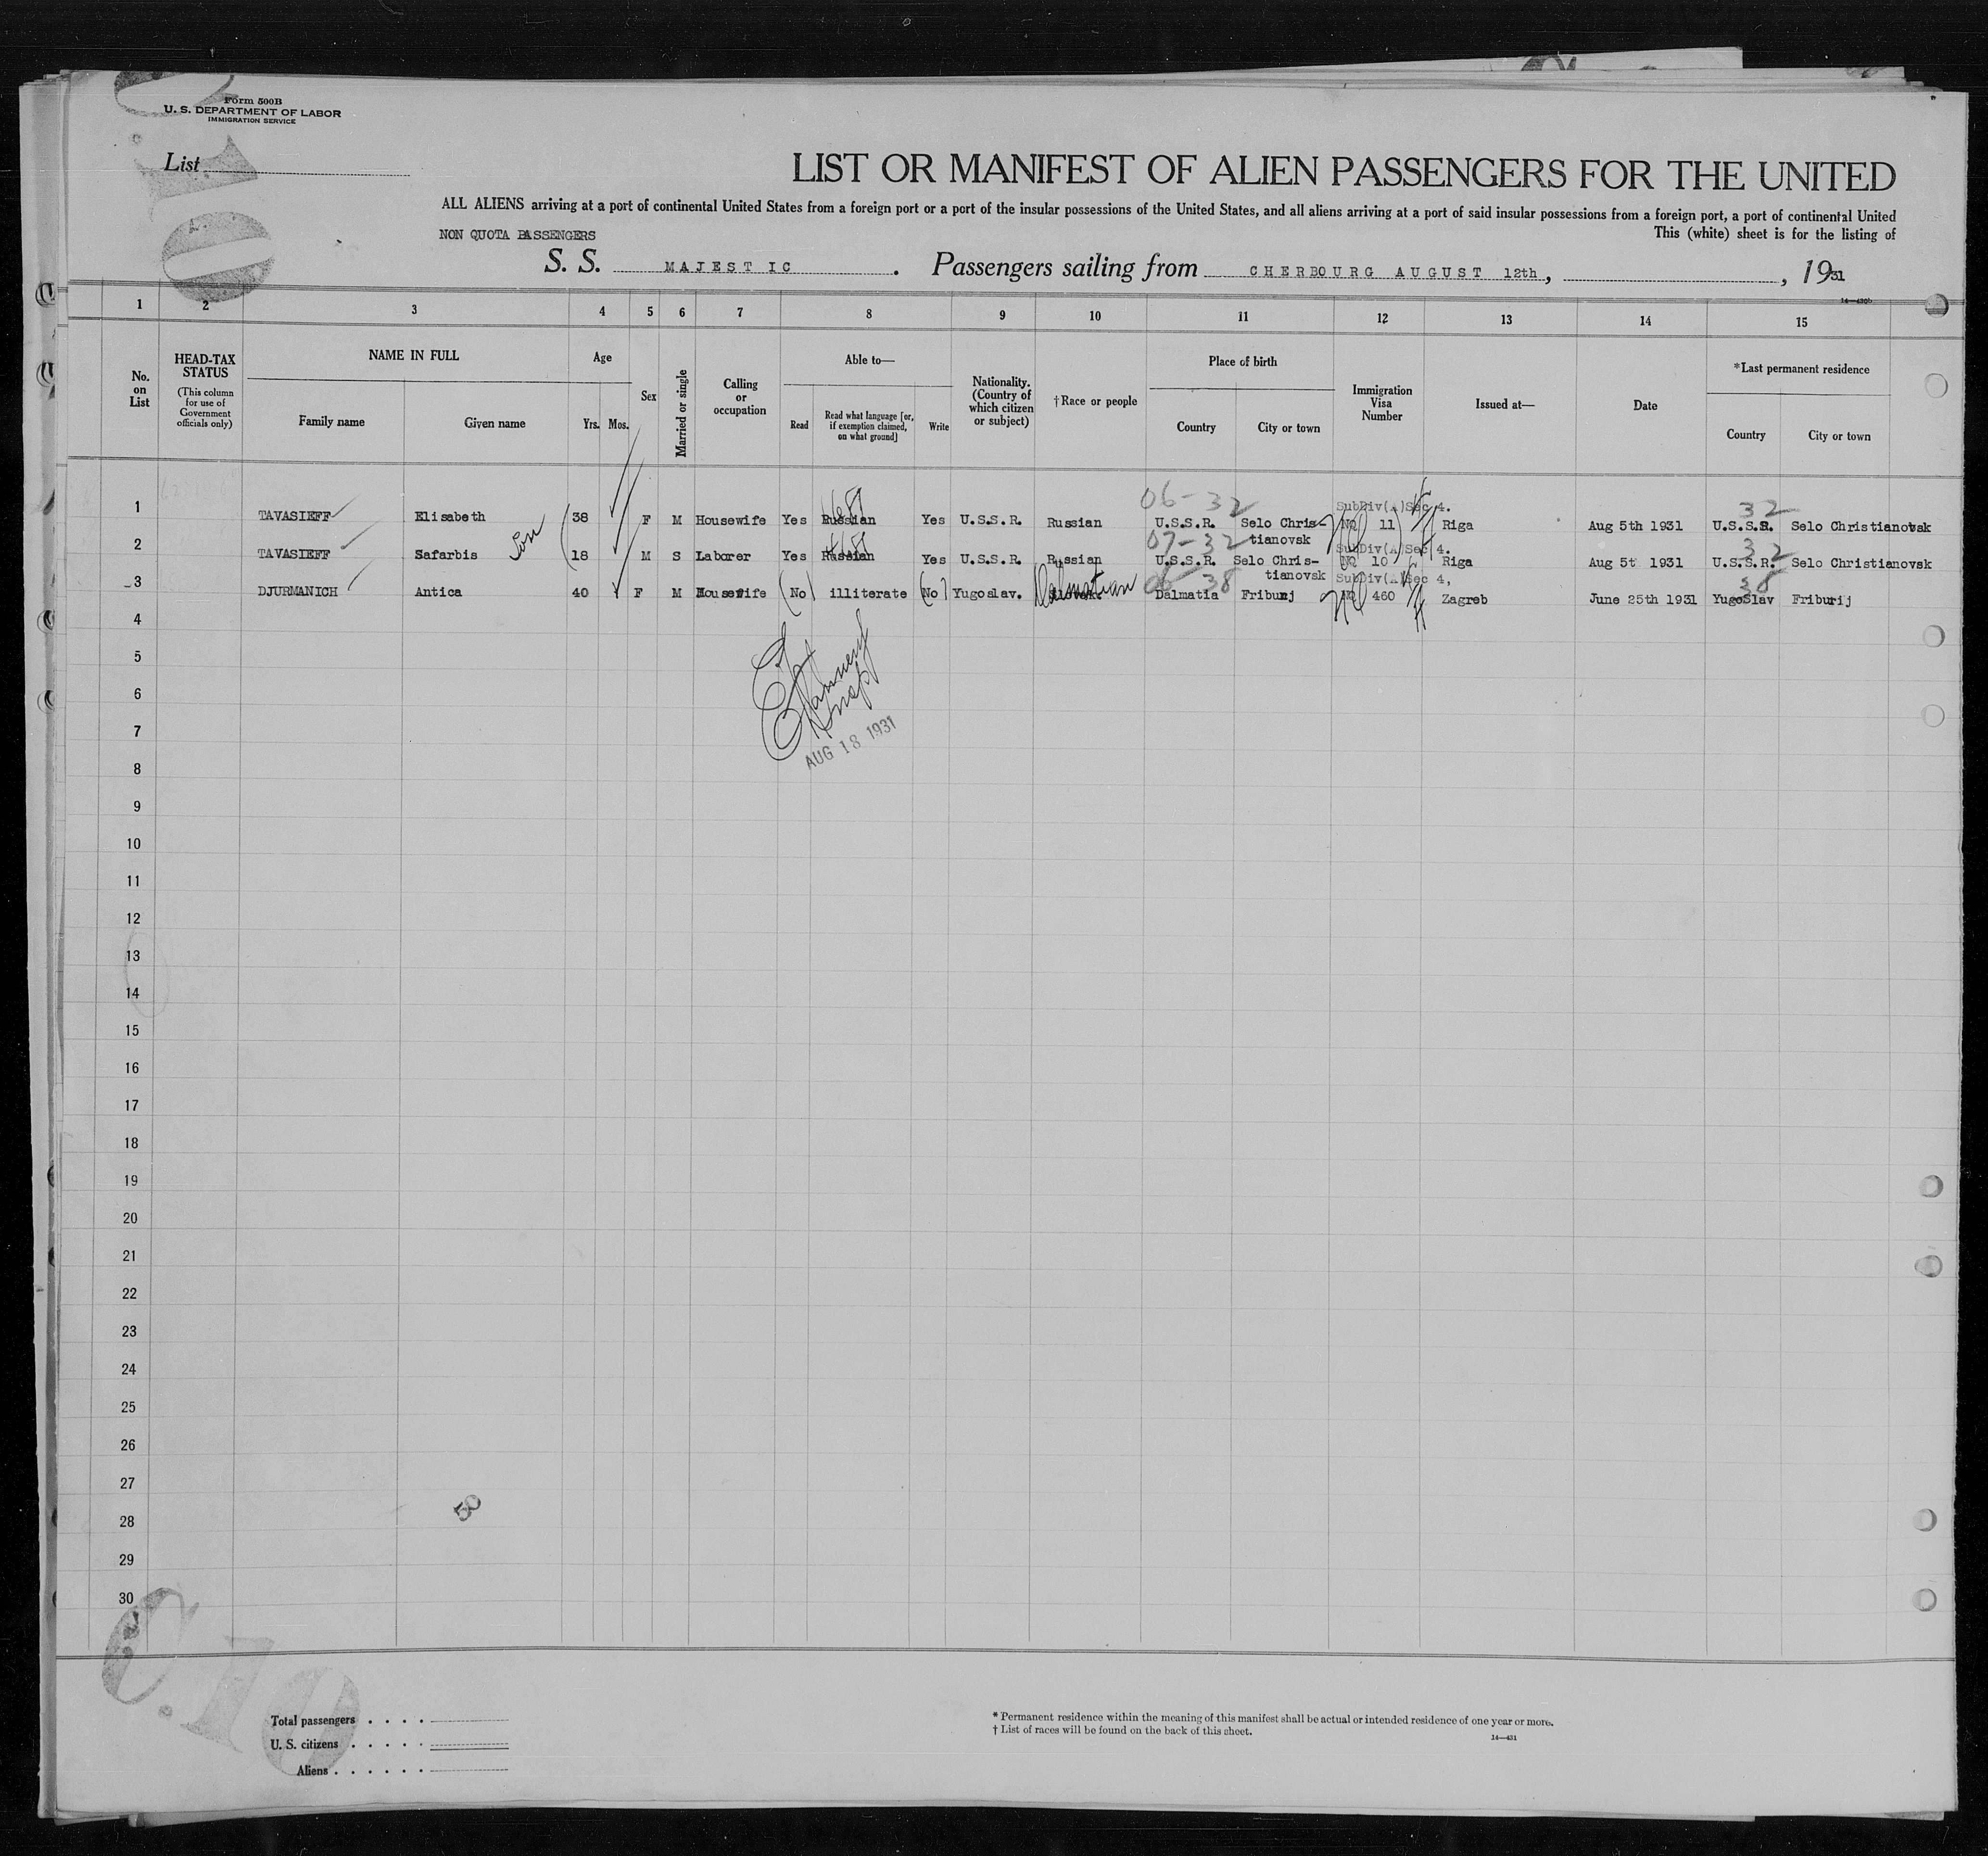 Form 500B
U. S. DEPARTMENT OF LABOR
IMMIGRATION SERVICE
List
LIST OR MANIFEST OF ALIEN PASSENGERS FOR THE UNITED
ALL ALIENS arriving at a port of continental United States from a foreign port or a port of the insular possessions of the United States, and all aliens arriving at a port of said insular possessions from a foreign port, a port of continental United
NON QUOTA PASSENGERS
This (white) sheet is for the listing of
S. S. MAJESTIC . Passengers sailing from CHERBOURG AUGUST 12th, , 1931
14—430b
1 2 3 4 5 6 7 8 9 10 11 12 13 14 15
No. on List
HEAD-TAX STATUS
(This column for use of Government officials only)
NAME IN FULL
Family name Given name
Age
Yrs. Mos.
Sex
Married or single
Calling or occupation
Able to—
Read Read what language [or, if exemption claimed, on what ground] Write
Nationality. (Country of which citizen or subject)
†Race or people
Place of birth
Country City or town
Immigration Visa Number
Issued at—
Date
*Last permanent residence
Country City or town
06-32 SubDiv(A)Sec 4. 32
1 TAVASIEFF Elisabeth 38 F M Housewife Yes Russian Yes U.S.S.R. Russian U.S.S.R. Selo Chris-tianovsk NQ 11 Riga Aug 5th 1931 U.S.S.R. Selo Christianovsk
07-32 SubDiv(A)Sec 4. 32
2 TAVASIEFF Safarbis Son 18 M S Laborer Yes Russian Yes U.S.S.R. Russian U.S.S.R. Selo Chris-tianovsk NQ 10 Riga Aug 5t 1931 U.S.S.R. Selo Christianovsk
06-38 SubDiv(A)Sec 4, 38
3 DJURMANICH Antica 40 F M Housewife (No) illiterate (No) Yugoslav. Dalmatian Dalmatia Fribunj NQ 460 Zagreb June 25th 1931 YugoSlav Friburij
4
5
6
7
AUG 18 1931
8
9
10
11
12
13
14
15
16
17
18
19
20
21
22
23
24
25
26
27
28
29
30
Total passengers
U. S. citizens
Aliens
* Permanent residence within the meaning of this manifest shall be actual or intended residence of one year or more.
† List of races will be found on the back of this sheet.
14—431